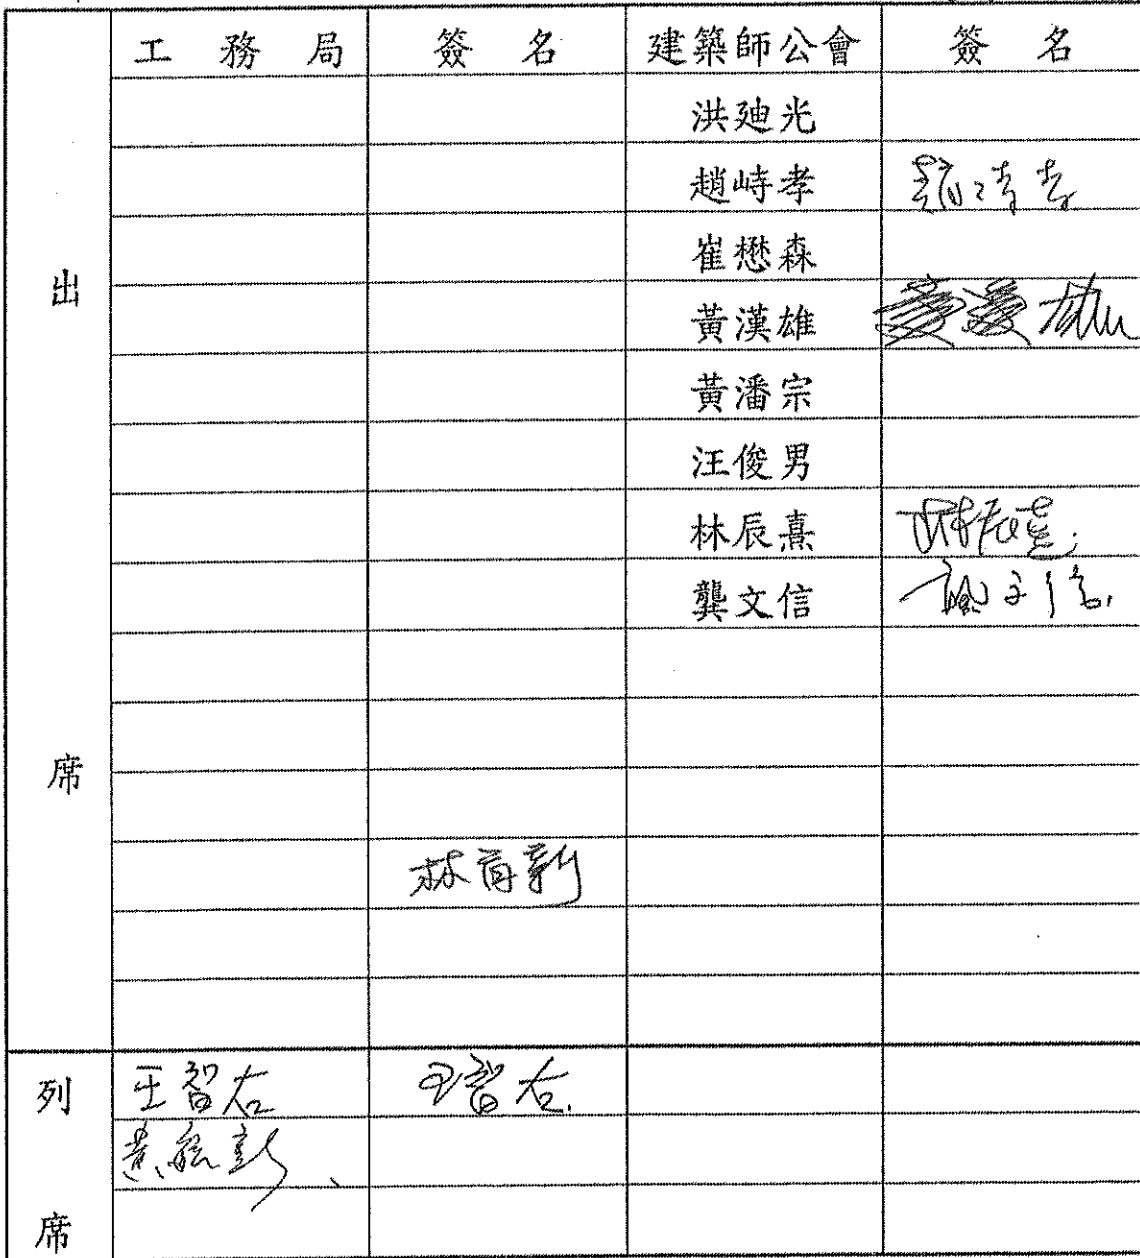 出席
工務局 簽名 建築師公會 簽名
洪廸光
趙峙孝 趙峙孝
崔懋森
黃漢雄 黃漢雄
黃潘宗
汪俊男
林辰熹 林辰熹
龔文信 龔文信
林育新
列席
王智右 王智右